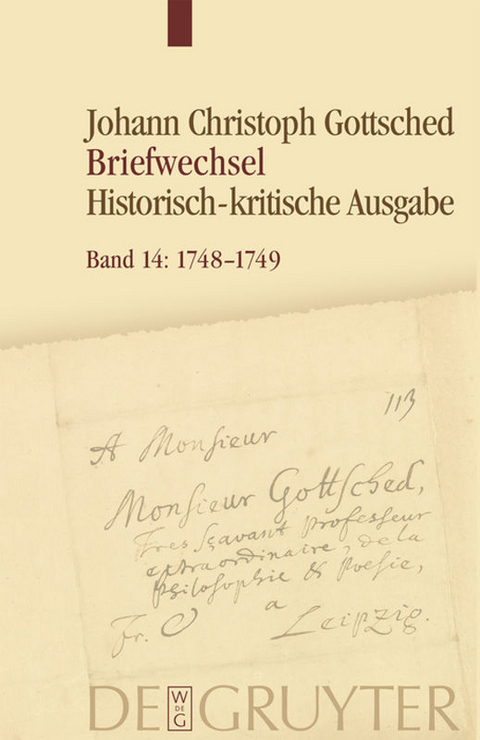 Johann Christoph Gottsched
Briefwechsel
Historisch-kritische Ausgabe
Band 14: 1748–1749
113
A Monsieur
Monsieur Gottsched,
Tres sçavant Professeur
extraordinaire, de la
Philosophie & Poesie,
Fr.
a
Leipzig.
DE GRUYTER
W
DE
G